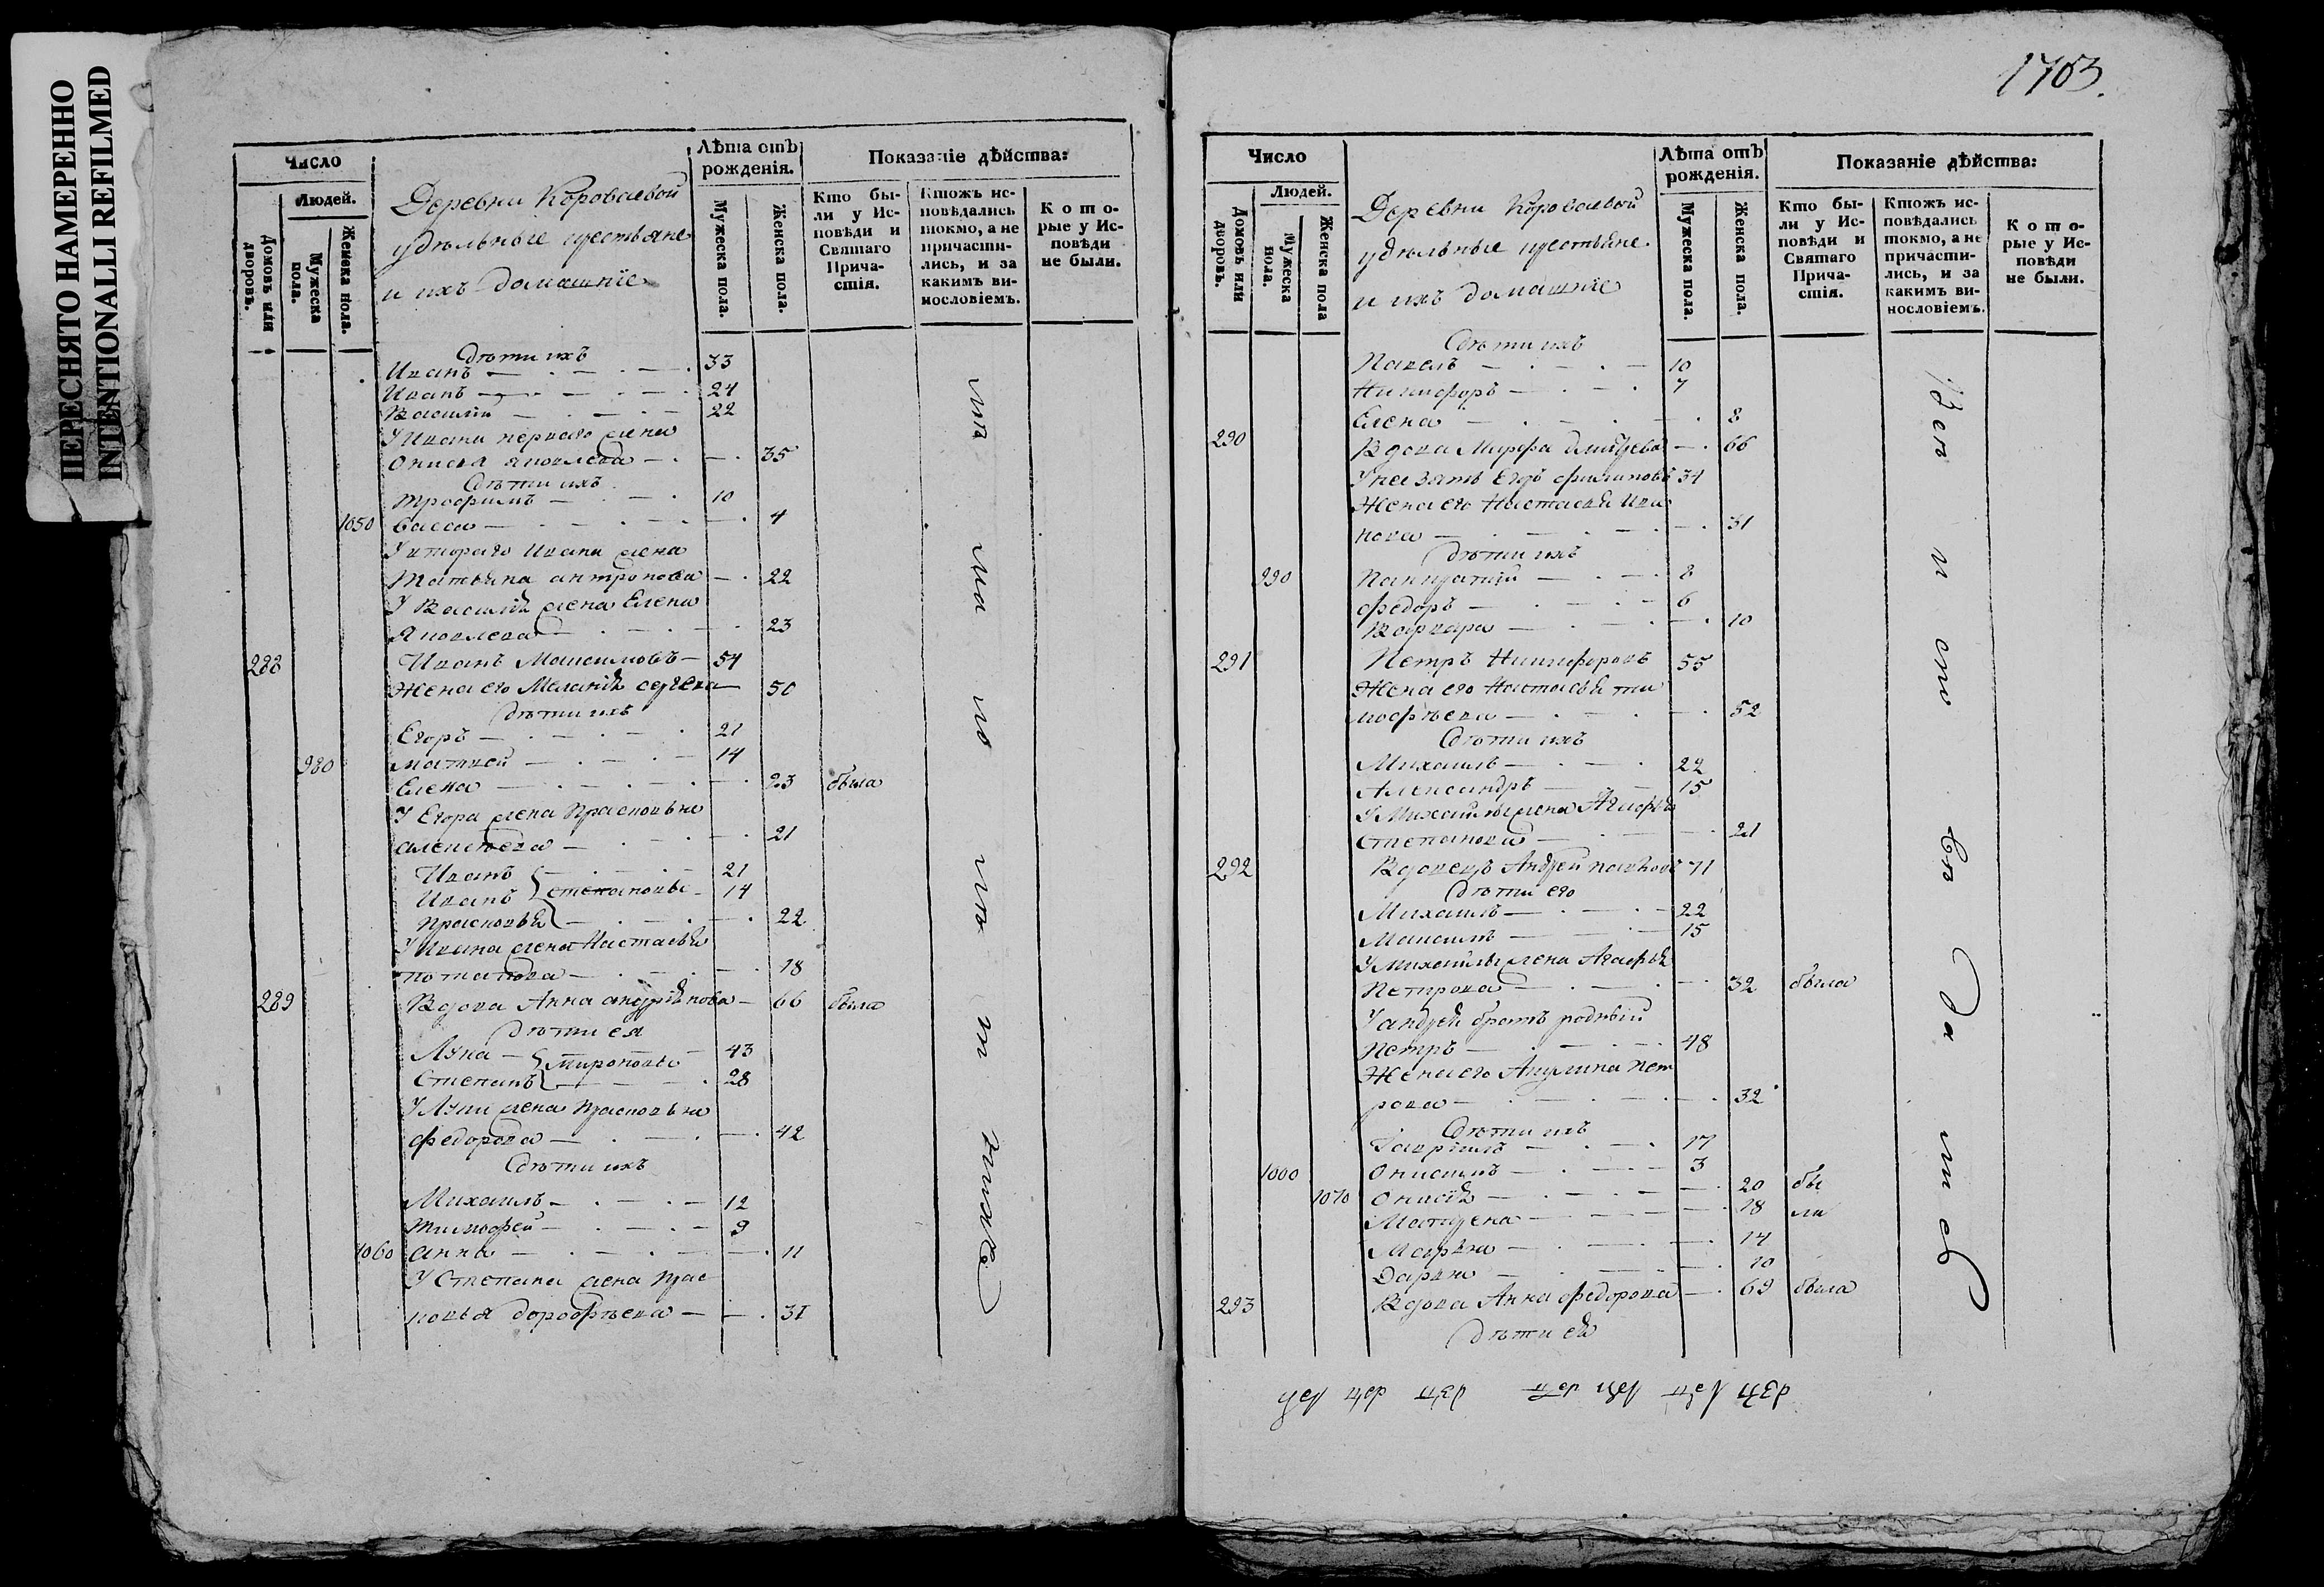 ПЕРЕСНЯТО НАМЕРЕННО
INTENTIONALLI REFILMED
Число
Людей.
Домовъ или дворовъ.
Мужеска пола.
Женска пола.
Деревни Короваевой
удѣльные крестьяне
и ихъ домашніе
Лѣта отъ рожденія.
Мужеска пола.
Женска пола.
Показаніе дѣйства:
Кто бы-
ли у Ис-
повѣди и
Святаго
Прича-
стія.
Ктожъ ис-
повѣдались
токмо, а не
причасти-
лись, и за
какимъ ви-
нословіемъ.
Кото-
рые у Ис-
повѣди
не были.
дѣти ихъ
Иванъ 33
Иванъ 24
Василій 22
У Ивана перваго жена
Онисья Яковлева 35
дѣти ихъ
Трофимъ 10
1050 Васса 4
У втораго Ивана жена
Татьяна Антропова 22
У Василія жена Елена
Яковлева 23
288 Иванъ Максимовъ 54
Жена его Меланія Сергѣева 50
дѣти ихъ
Егоръ 21
980 Матвей 14
Елена 23 была
У Егора жена Прасковья
Алексѣева 21
Иванъ 21
Иванъ Степановы 14
Прасковья 22
У Ивана жена Настасья
Потапова 18
289 Вдова Анна Андріянова 66 была
дѣти ея
Лука Мироновы 43
Степанъ 28
У Луки жена Прасковья
Федорова 42
дѣти ихъ
Михаилъ 12
Тимофей 9
1060 Анна 11
У Степана жена Прас
ковья Дорофѣева 31
1703.
Число
Людей.
Домовъ или дворовъ.
Мужеска пола.
Женска пола
Деревни Короваевой
удѣльные крестьяне
и ихъ домашніе
Лѣта отъ рожденія.
Мужеска пола.
Женска пола.
Показаніе дѣйства:
Кто бы-
ли у Ис-
повѣди и
Святаго
Прича-
стія.
Ктожъ ис-
повѣдались
токмо, а не
причасти-
лись, и за
какимъ ви-
нословіемъ.
Кото-
рые у Ис-
повѣди
не были.
дѣти ихъ
Павелъ 10
Никифоръ 7
Елена 8
290 Вдова Марфа Дмитрева 66
У нея зять Егоръ Филиповъ 34
Жена его Настасья Ива
нова 31
дѣти ихъ
990 Панкратій 8
Федоръ 6
Варвара 10
291 Петръ Никифоровъ 55
Жена его Настасья Ти
мофѣева 52
дѣти ихъ
Михаилъ 22
Александръ 15
У Михайлы жена Агафья
Степанова 21
292 Вдовецъ Андрей 71
дѣти его
Михаилъ 22
Максимъ 15
У Михайлы жена Агафья
Петрова 32 была
У Андрея братъ родный
Петръ 48
Жена его Акулина Пет
рова 32
дѣти ихъ
Гавріилъ 17
1000 Онисимъ 3
1070 Онисія 20 бы
Матрена 18 ли
Марья 14
Дарья 10
293 Вдова Анна Федорова 69 была
дѣти ея